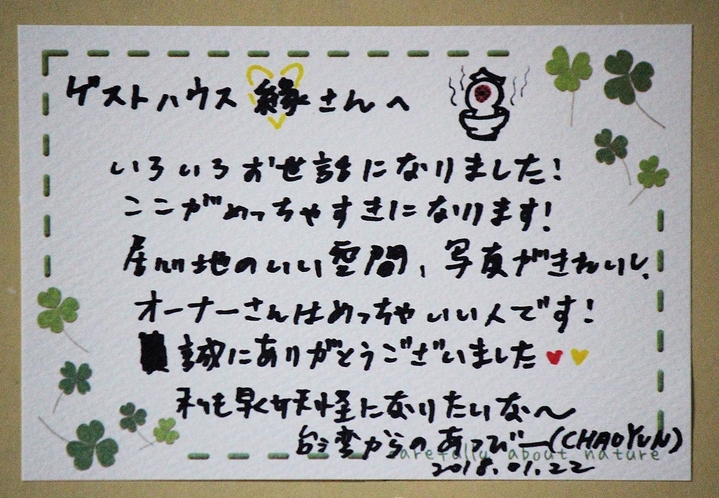 ゲストハウス 縁さんへ
いろいろお世話になりました!
ここがめっちゃすきになります!
居心地のいい空間、写真がきれいし、
オーナーさんはめっちゃいい人です!
誠にありがとうございました
私も早く妖怪になりたいな〜
台湾からのあつびー(CHAOYUN)
carefully about nature
2018.01.22